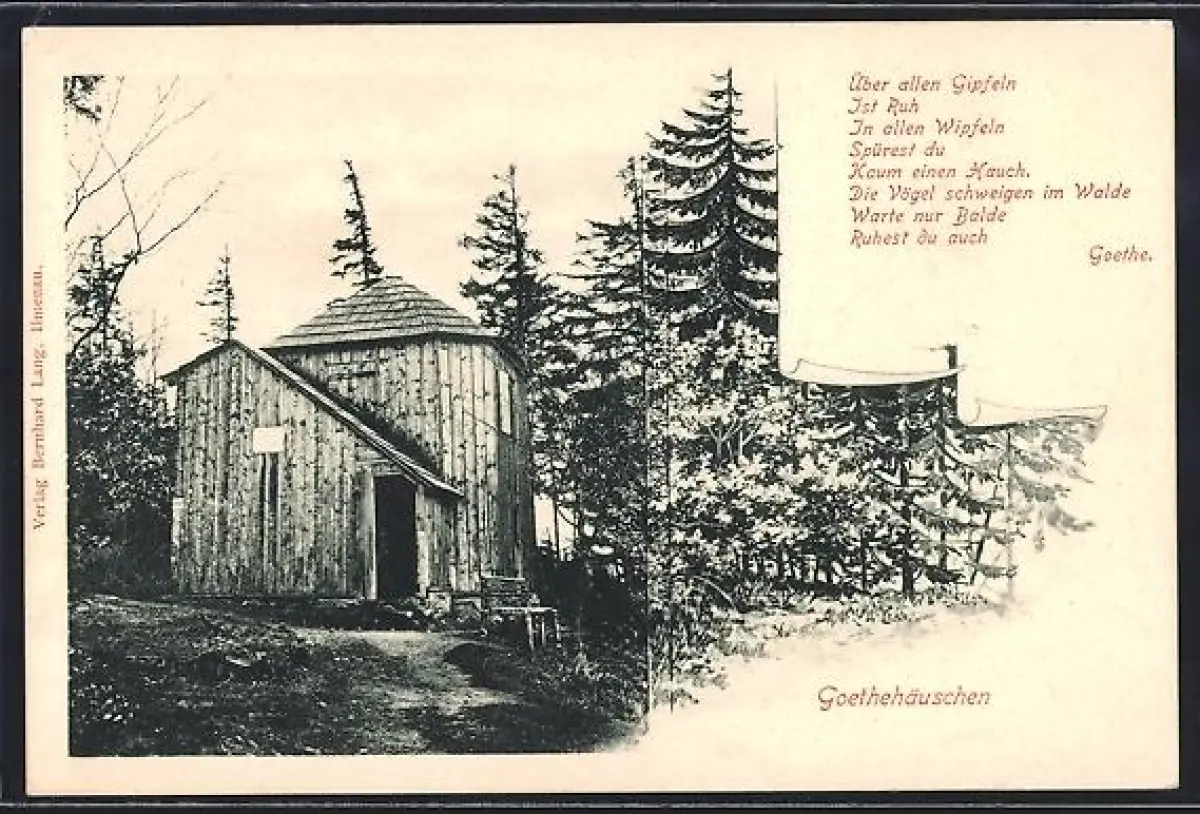 Über allen Gipfeln
Ist Ruh
In allen Wipfeln
Spürest du
Kaum einen Hauch.
Die Vögel schweigen im Walde
Warte nur Balde
Ruhest du auch
Goethe.
Goethehäuschen
Verlag Bernhard Lang, Ilmenau.